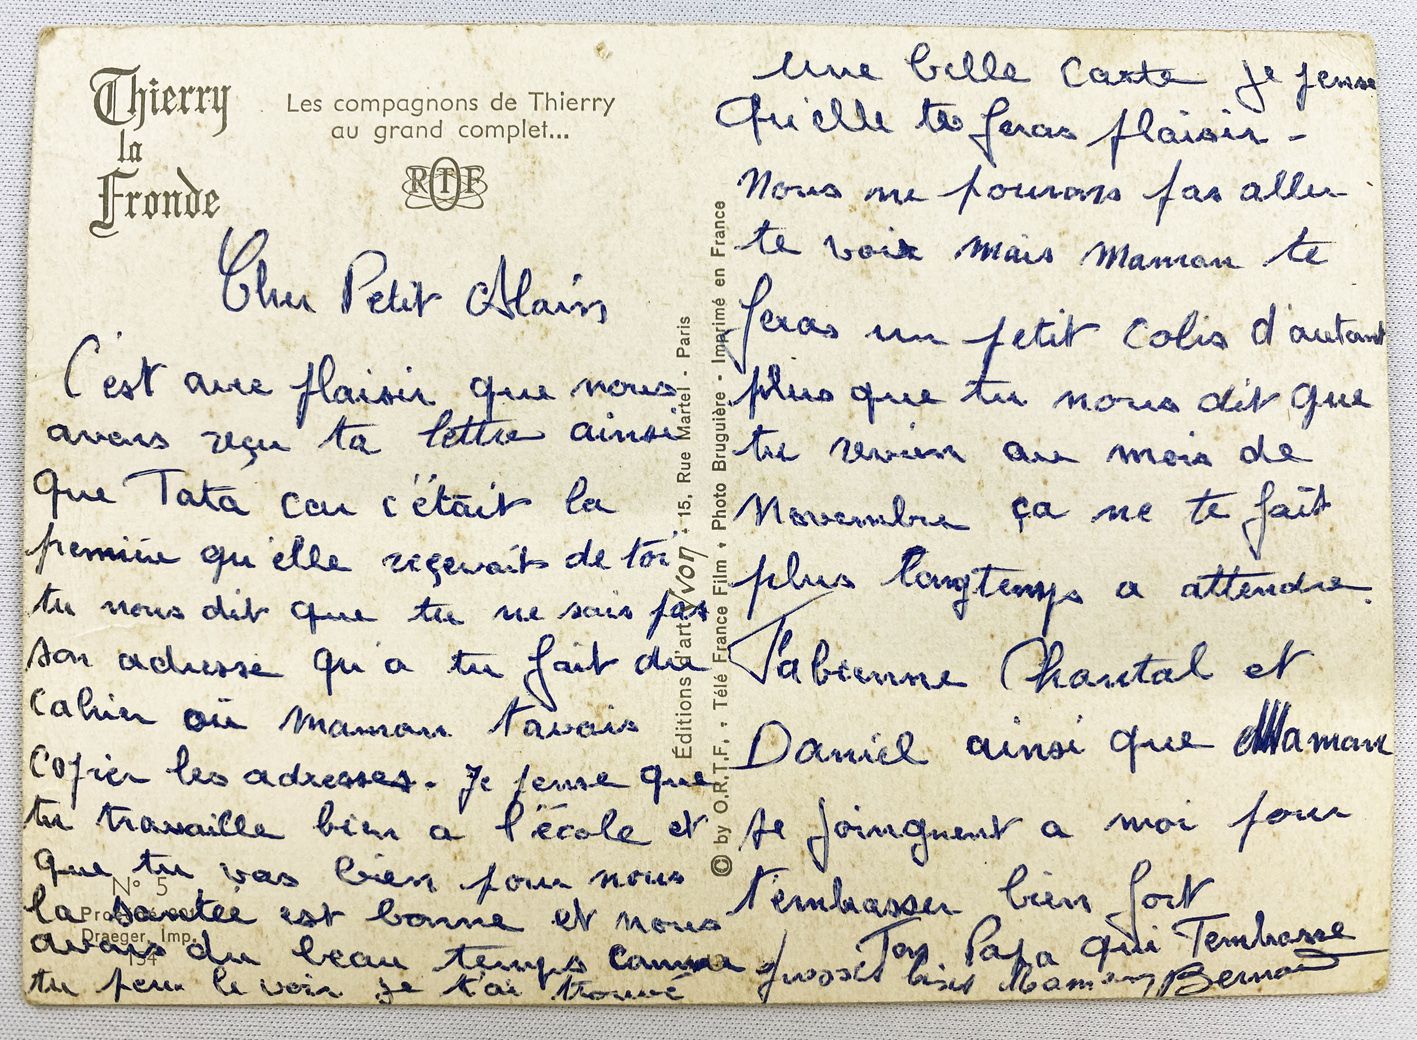 Thierry
la
Fronde
Les compagnons de Thierry
au grand complet...
RTF
Cher Petit Alain
C'est avec plaisir que nous
avons reçu ta lettre ainsi
que Tata car c'était la
première qu'elle reçevait de toi
tu nous dit que tu ne sais pas
son adresse qu'a tu fait du
cahier où maman t'avais
copier les adresses. Je pense que
tu travaille bien a l'école et
que tu vas bien pour nous
la santée est bonne et nous
avons du beau temps comme
tu peu le voir je t'ai trouvé
N° 5
Draeger, Imp.
Éditions d'art Yvon • 15, Rue Martel - Paris
© by O.R.T.F. • Télé France Film • Photo Bruguière - Imprimé en France
une belle carte je pense
qu'elle te feras plaisir -
Nous ne pouvons pas aller
te voir mais maman te
feras un petit colis d'autant
plus que tu nous dit que
tu revien au mois de
Novembre ça ne te fait
plus longtemps a attendre.
Fabienne Chantal et
Daniel ainsi que Maman
se joingnent a moi pour
t'embrasser bien fort
Ton Papa qui T'embrasse
grosses bises Maman Bernard